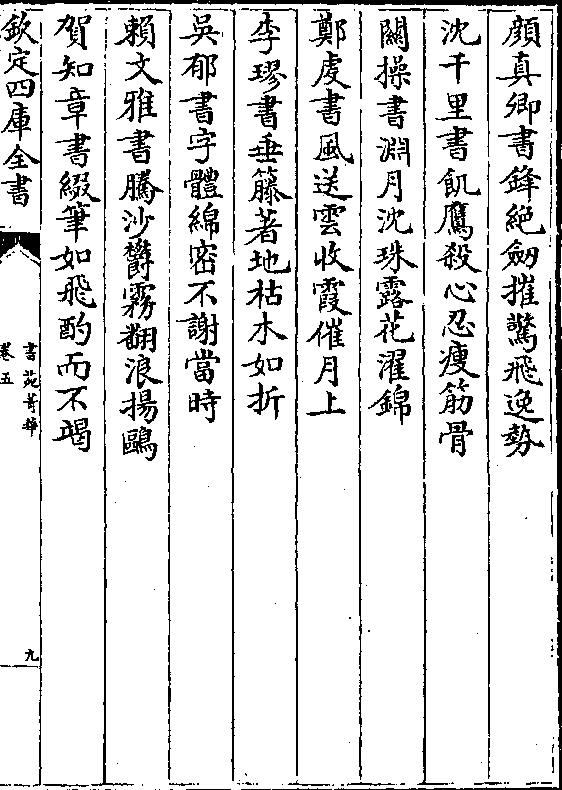 顔真卿書鋒絶劒摧驚飛逸勢
沈千里書飢鷹殺心忍瘦筋骨
關操書淵月沈珠露花濯錦
鄭虔書風送雲收霞催月上
李璆書垂籐著地枯木如折
吳郁書字體綿密不謝當時
賴文雅書騰沙鬱霧翻浪揚鷗
賀知章書綴筆如飛酌而不竭
欽定四庫全書
書苑菁華
卷五
九